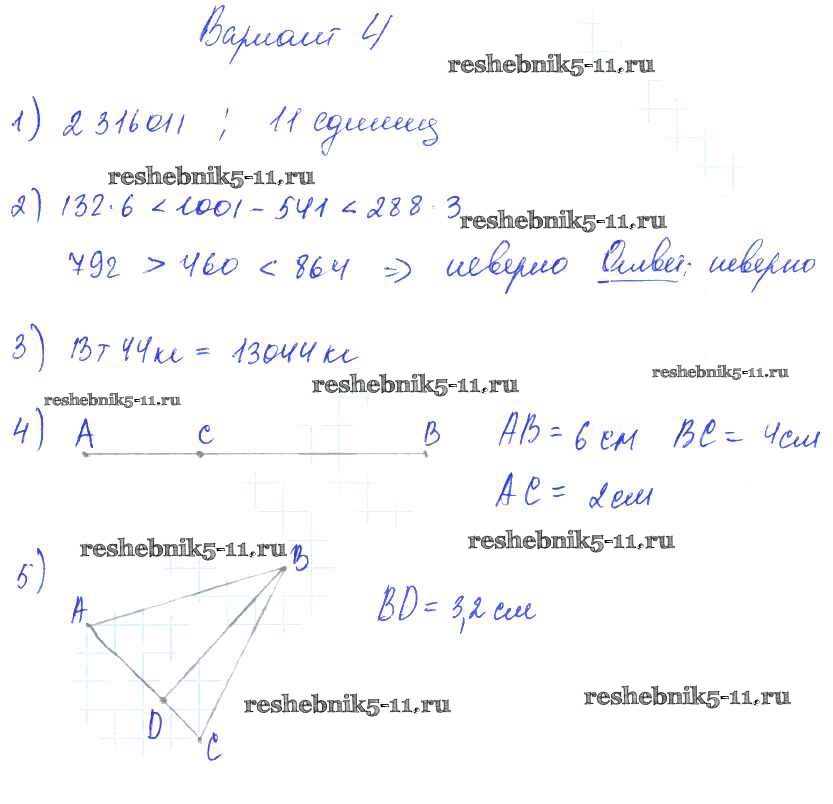 Вариант 4
reshebnik5-11.ru
1) 2 316 011 ; 11 единиц
reshebnik5-11.ru
2) 132·6 < 1001 - 541 < 288·3
reshebnik5-11.ru
792 > 460 < 864 => неверно Ответ: неверно
3) 13 т 44 кг = 13044 кг
reshebnik5-11.ru
reshebnik5-11.ru
reshebnik5-11.ru
4) A C B AB = 6 см BC = 4 см
AC = 2 см
reshebnik5-11.ru
reshebnik5-11.ru
5) B
A BD = 3,2 см
reshebnik5-11.ru
reshebnik5-11.ru
D C